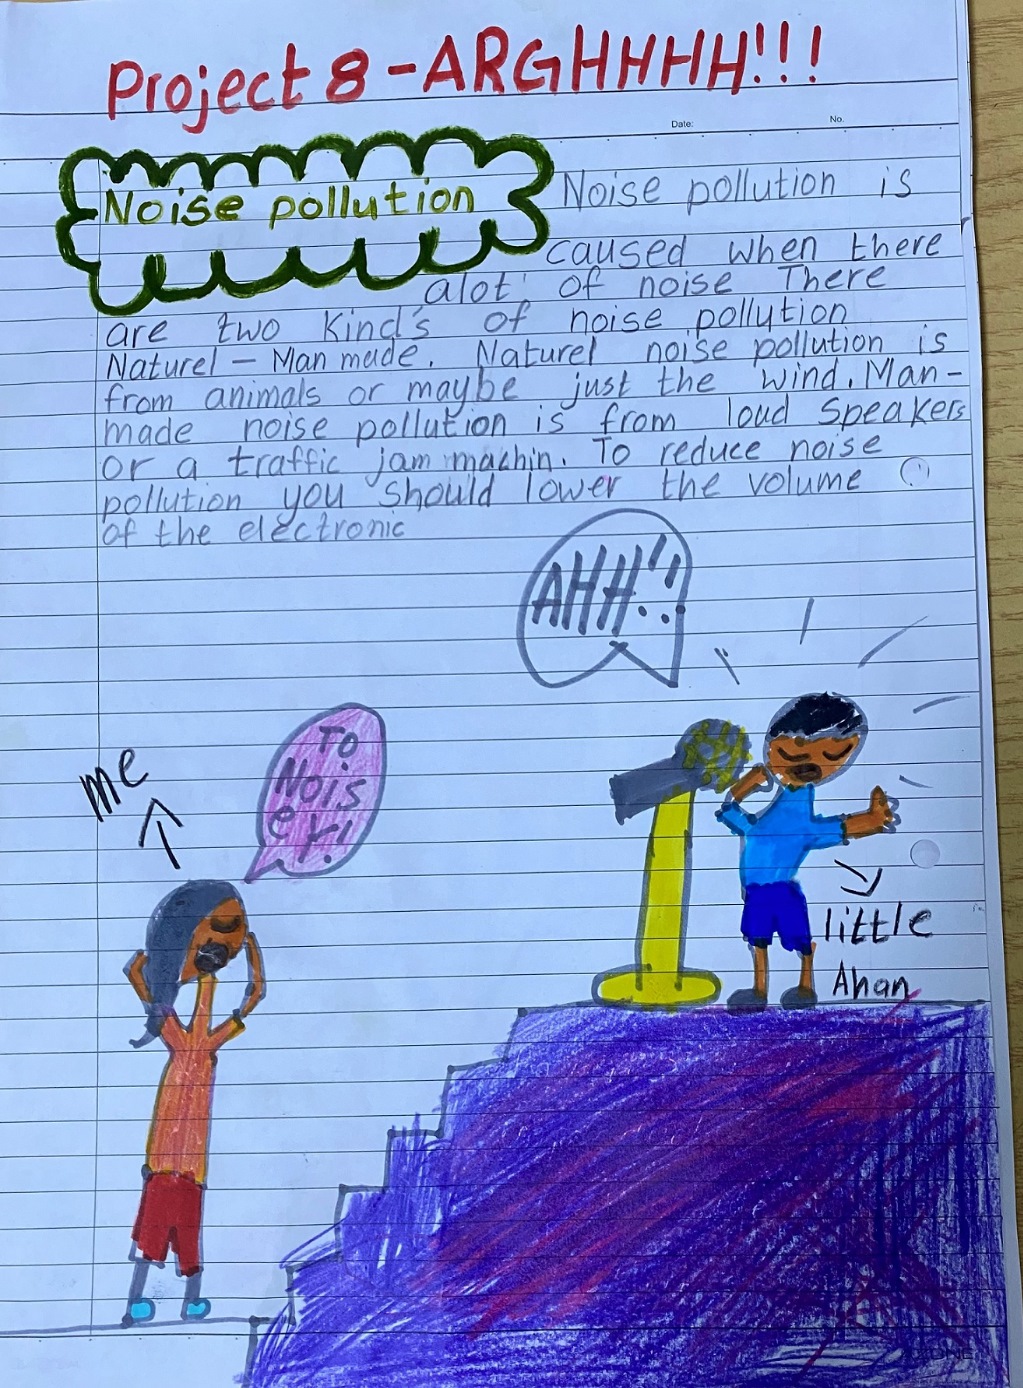 Project 8 - ARGHHHH!!!
Date:
No.
Noise pollution
Noise pollution is
caused when there
alot of noise There
are two kind's of noise pollution
Naturel - Man made. Naturel noise pollution is
from animals or maybe just the wind. Man-
made noise pollution is from loud speakers
or a traffic jam machin. To reduce noise
pollution you should lower the volume
of the electronic
AHH!!
me
TO
NOIS
eY!
little
Ahan